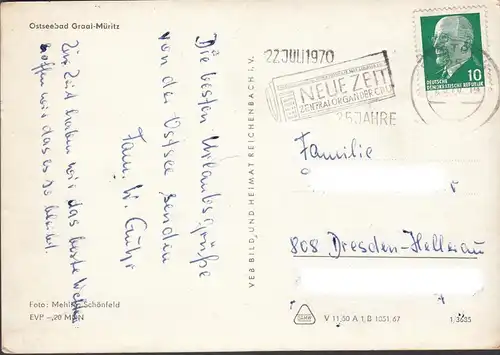 Ostseebad Graal-Müritz
Die besten Urlaubsgrüße
von der Ostsee senden
Fam. W. Guhr
Zur Zeit haben wir das beste Wetter
hoffen wir das es so bleibt.
Foto: Schönfeld
EVP –,20 MDN
VEB BILD UND HEIMAT REICHENBACH i. V.
22 JULI 1970
NEUE ZEIT
ZENTRALORGAN DER CDU
25 JAHRE
10
DEUTSCHE
DEMOKRATISCHE REPUBLIK
Familie
808 Dresden-Hellerau
V 11 50 A 1 B 1051 67
1/3635